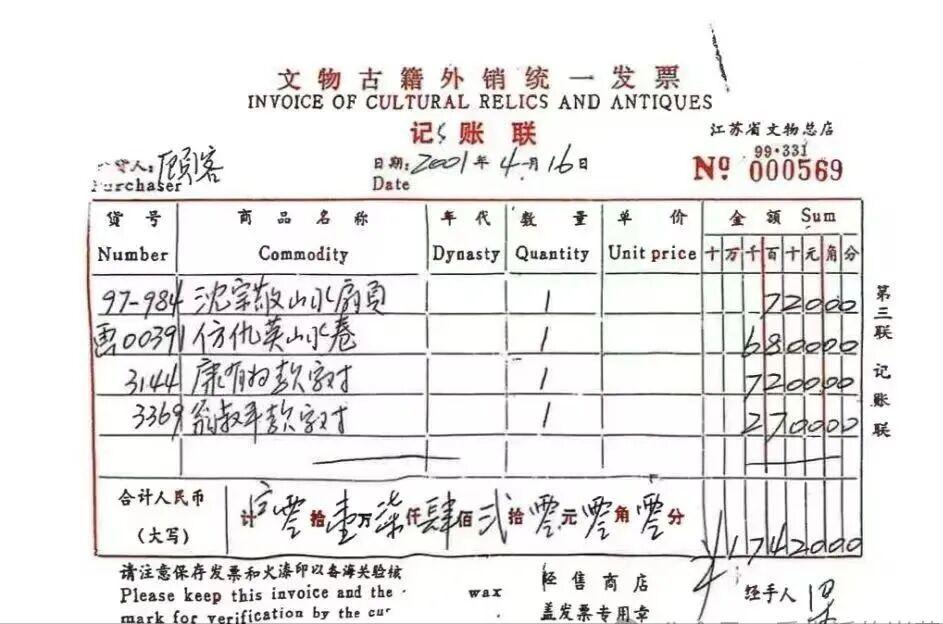 文物古籍外销统一发票
INVOICE OF CULTURAL RELICS AND ANTIQUES
记账联
江苏省文物总店
99·331
Nº 000569
货人: 顾客
Purchaser
日期: 2001年4月16日
Date
货号 商品名称 年代 数量 单价 金额 Sum
Number Commodity Dynasty Quantity Unit price 十万千百十元角分
97-984 沈宗敬山水扇页 1 72000
画00391 仿仇英山水卷 1 680000
3144 康有为款字对 1 720000
3369 翁叔平款字对 1 270000
合计人民币 计 零拾壹万柒仟肆佰贰拾零元零角零分
(大写) ¥1742000
第三联 记账联
请注意保存发票和火漆印以备海关验核
Please keep this invoice and the wax
mark for verification by the cus
经售商店
盖发票专用章
经手人